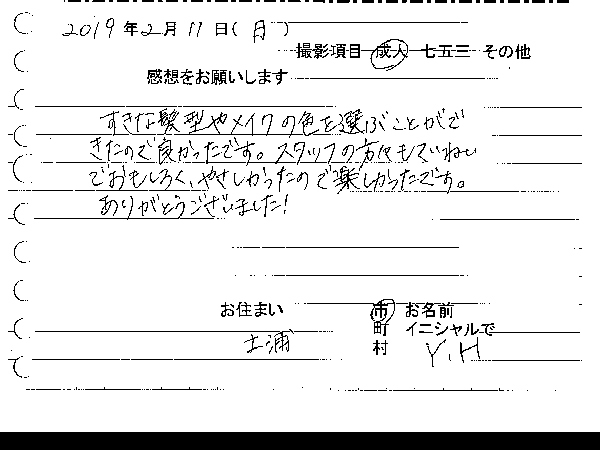 2019年2月11日(月)
撮影項目 成人 七五三 その他
感想をお願いします
すきな髪型やメイクの色を選ぶことがで
きたので良かったです。スタッフの方々もていねい
でおもしろく、やさしかったので楽しかったです。
ありがとうございました!
お住まい 市 お名前
町 イニシャルで
土浦 村 Y.H